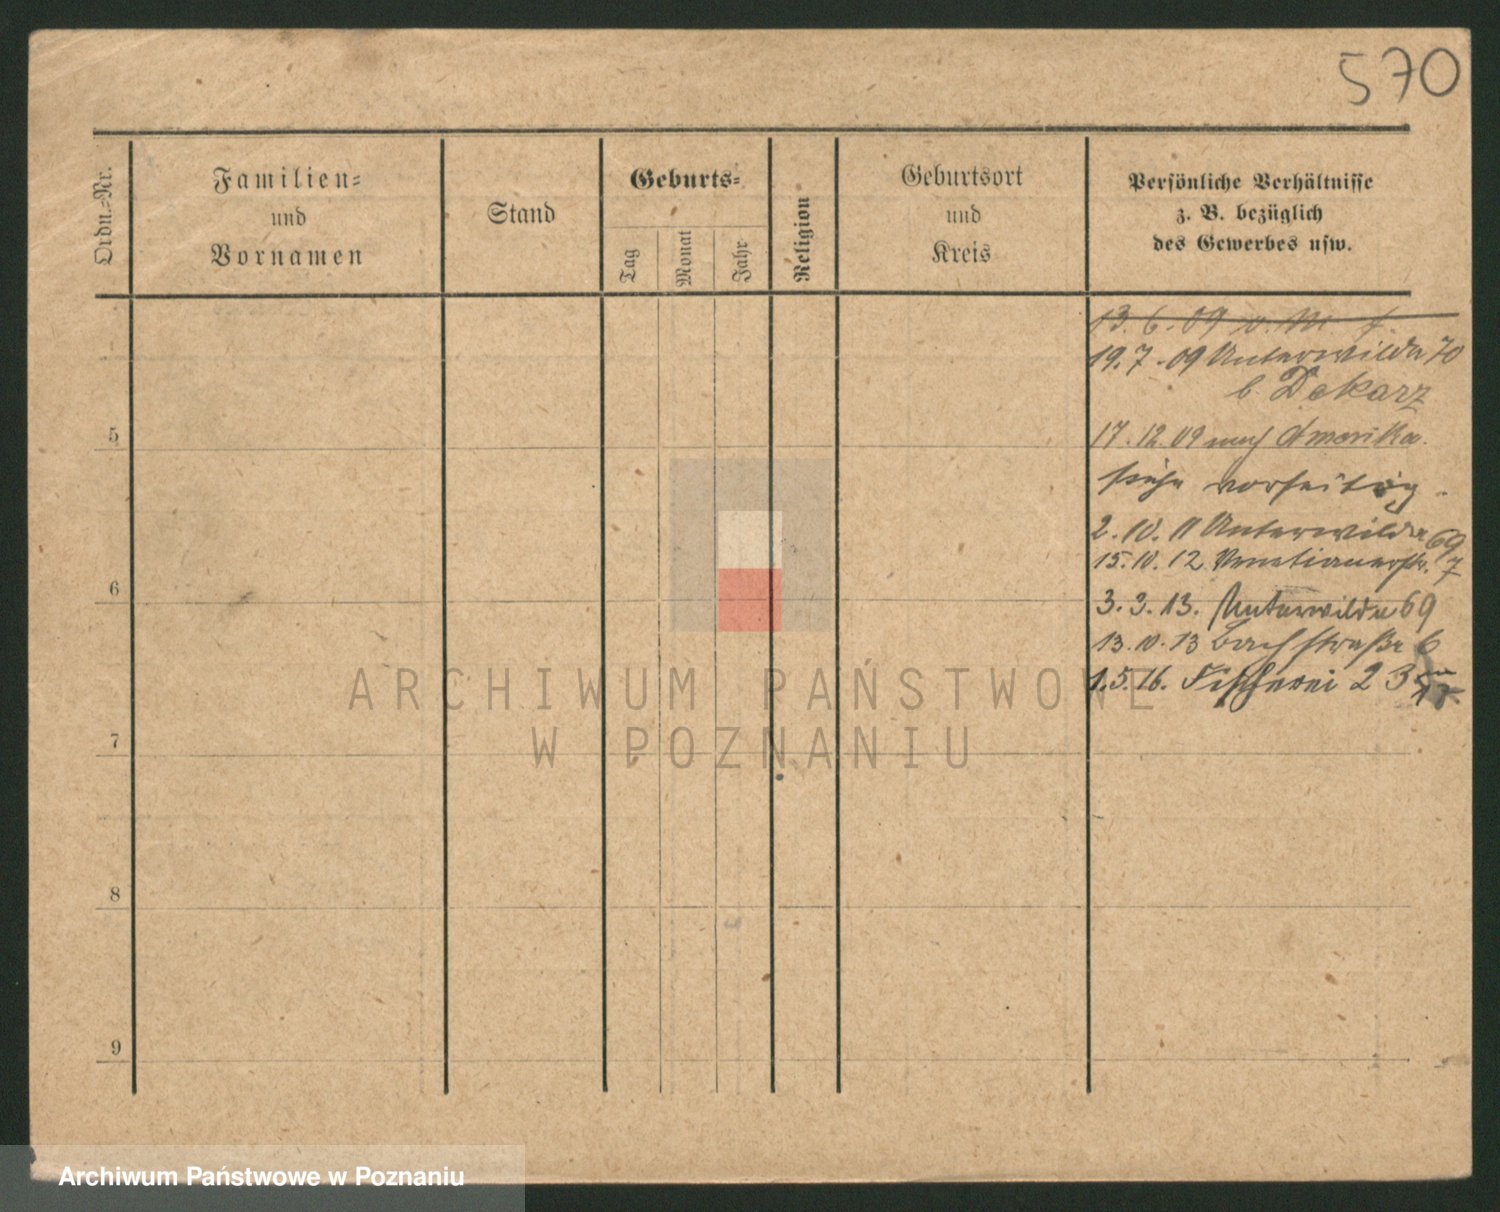 570
Ordn.=Nr.
Familien=
und
Vornamen
Stand
Geburts=
Tag
Monat
Jahr
Religion
Geburtsort
und
Kreis
Persönliche Verhältnisse
z. B. bezüglich
des Gewerbes usw.
13. 6. 09 v. M. f.
19. 7. 09 Unterwilda 70
b. Dekarz
17. 12. 09 nach Amerika.
siehe vorseitig.
2. 10. 11 Unterwilda 69
15. 10. 12 Venetianerstr. 7
3. 3. 13. Unterwilda 69
13. 10. 13 Bachstraße 6
1. 5. 16. Fischerei 23
5
6
7
8
9
ARCHIWUM PAŃSTWOWE
W POZNANIU
Archiwum Państwowe w Poznaniu